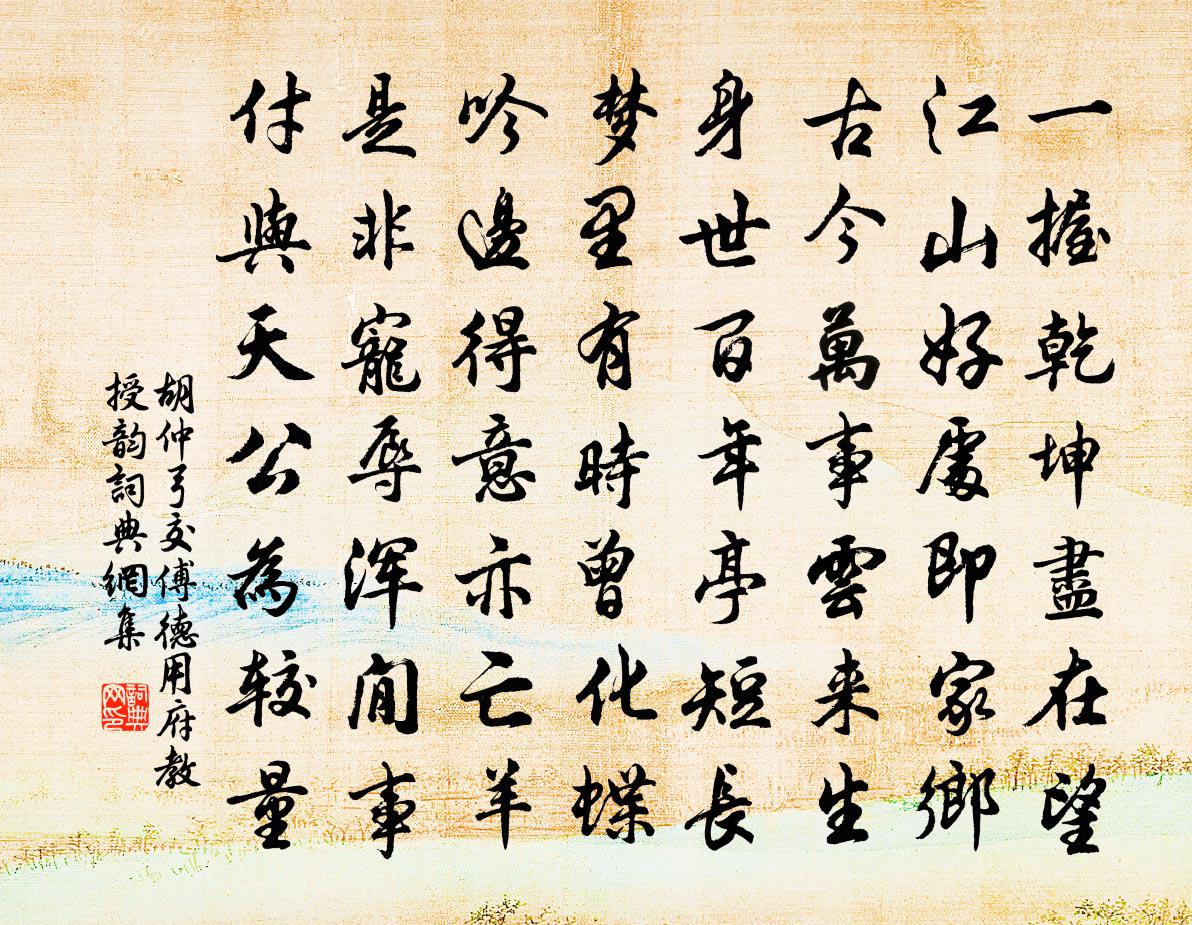 一握乾坤盡在望
江山好處即家鄉
古今萬事雲来生
身世百年亭短長
梦里有時曾化蝶
吟邊得意亦亡羊
是非寵辱浑閒事
付與天公為較量
胡仲弓交傅德用府教
授韵詞典網集
詞典网印